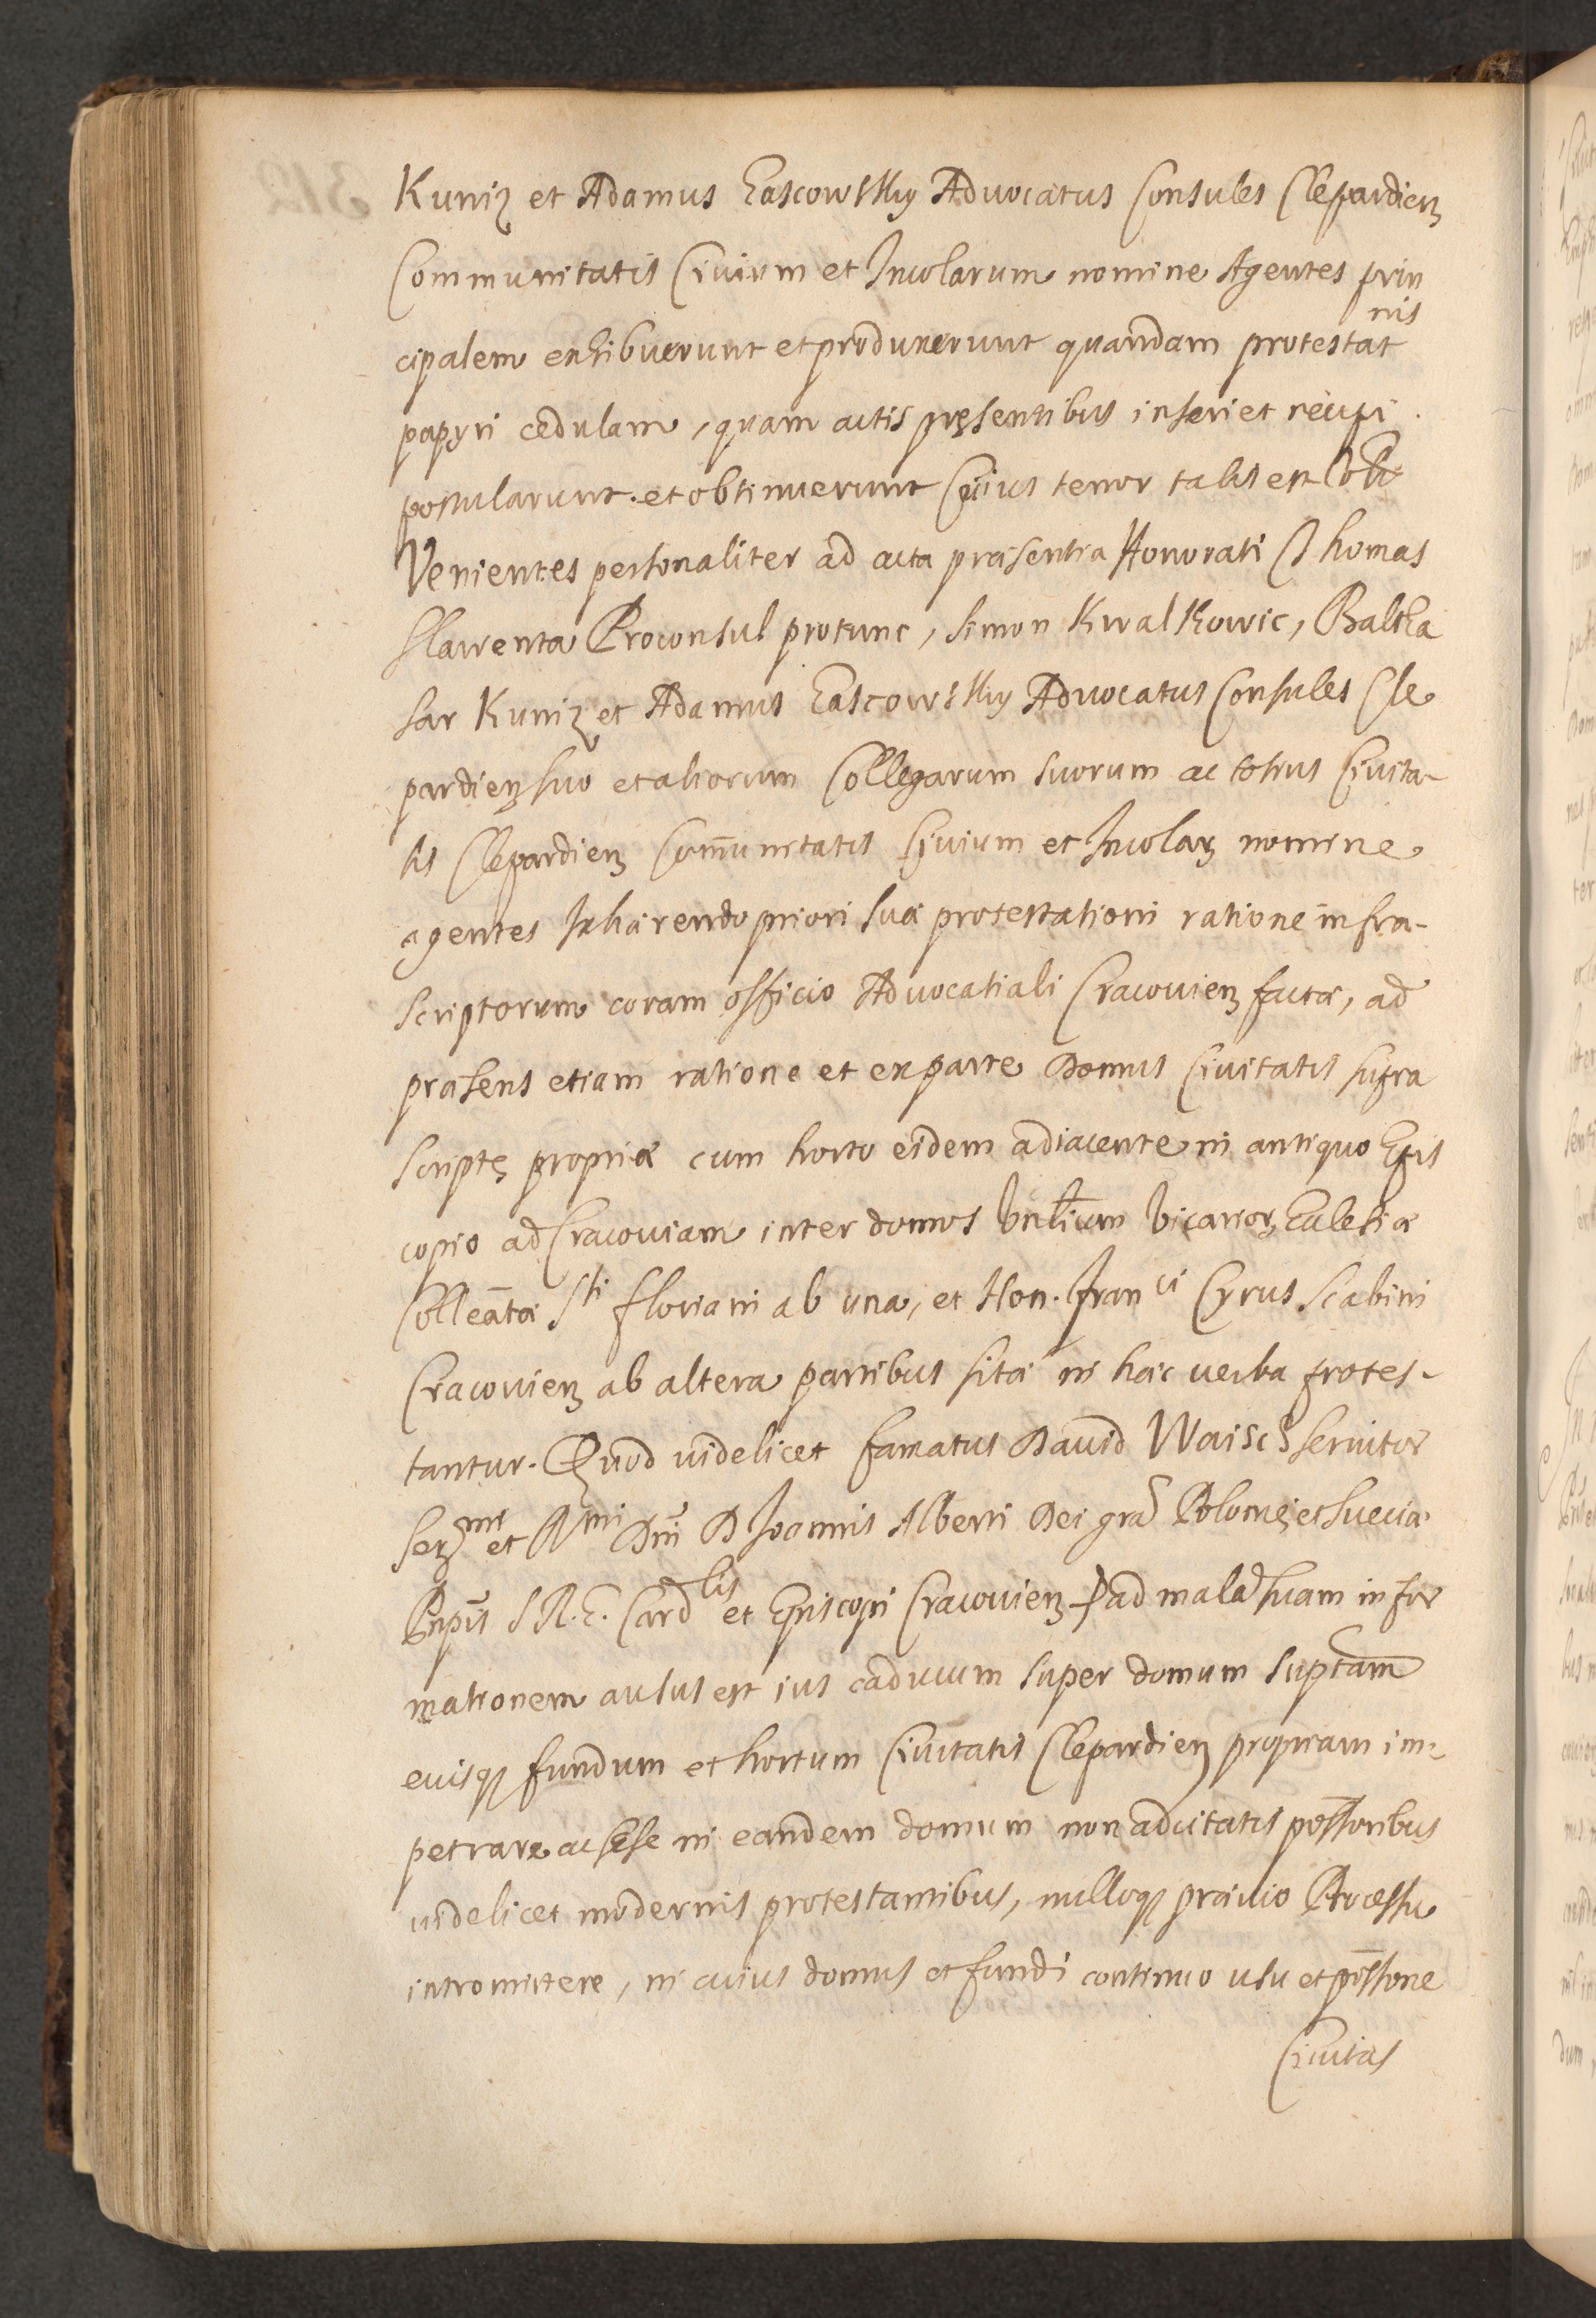 Kuniz et Adamus Eascowsky Advocatus Consules Clepardien
Communitatis Civium et Incolarum nomine Agentes prin
cipalem exhibuerunt et produxerunt quandam protestatnis
papyri cedulam, quam actis pręsentibus inseri et recipi
postularunt. et obtinuerunt Cuius tenor talis est
Venientes personaliter ad acta præsentia Honorati Thomas
Slawenta Proconsul protunc, Simon Kwalkowic, Baltha
sar Kuniz et Adamus Eascowsky Advocatus Consules Cle
pardien suo et aliorum Collegarum suorum ac totius Civita-
tis Clepardien Com̄unitatis Civium et Incolar nomine
agentes Inhærendo priori suæ protestationi ratione infra-
scriptorum coram officio Advocatiali Cracovien factæ, ad
præsens etiam ratione et ex parte Domus Civitatis supra
scriptę propriæ cum horto eidem adiacente in antiquo Epis
copio ad Cracoviam inter domos Vicarior Ecclesiæ
Colleātæ Sti Floriani ab una, et Hon. Franci Cyrus Scabini
Cracovien ab altera partibus sitæ in hæc verba protes-
tantur. Quod videlicet famatus David Waisch servitor
Sermi et Rmi Dni D Joannis Alberti Dei gra Polonię et Sueciæ
Pnpis S R. E. Cardlis et Episcopi Cracovien ad malā suam infor
mationem ausus est ius caducum super domum suptam
eiusq fundum et hortum Civitatis Clepardien propriam im-
petrare ac sese in eandem domum non adcitatis possoribus
videlicet modernis protestantibus, nulloq prævio Processu
intromittere, in cuius domus et fundi continuo usu et possone
Civitas